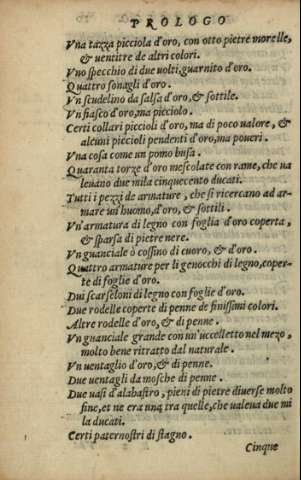 PROLOGO
Vna tazza picciola d'oro, con otto pietre morelle,
& ventitre de altri colori.
Vno specchio di due uolti, guarnito d'oro.
Quattro sonagli d'oro.
Vn scudelino da salsa d'oro, & sottile.
Vn fiasco d'oro, ma picciolo.
Certi collari piccioli d'oro, ma di poco ualore, &
alcuni piccioli pendenti d'oro, ma poueri.
Vna cosa come un pomo busa.
Quaranta torze d'oro mescolate con rame, che ua
leuano due mila cinquecento ducati.
Tutti i pezzi de armature, che si ricercano ad ar-
mare un'huomo, d'oro, & sottili.
Vn'armatura di legno con foglia d'oro coperta,
& sparsa di pietre nere.
Vn guanciale ò cossino di cuoro, & d'oro.
Quattro armature per li genocchi di legno, coper-
te di foglie d'oro.
Dui scarseloni di legno con foglie d'oro.
Due rodelle coperte di penne de finissimi colori.
Altre rodelle d'oro, & di penne.
Vn guanciale grande con un'uccelletto nel mezo,
molto bene ritratto dal naturale.
Vn uentaglio d'oro, & di penne.
Due uentagli da mosche di penne.
Due uasi d'alabastro, pieni di pietre diuerse molto
fine, et ne era una tra quelle, che ualeua due mi
la ducati.
Certi paternostri di stagno.
Cinque